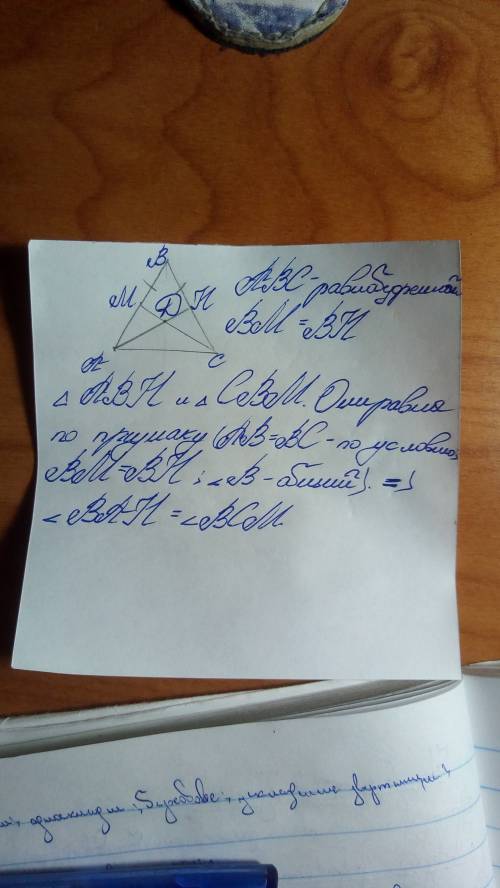 B
M
D
H
A
C
ABC - равнобедренный
BM = BH
△ ABH и △ CBM. Они равны
по признаку (AB=BC - по условию;
BM=BH; ∠B - общий). =>
∠BAH = ∠BCM